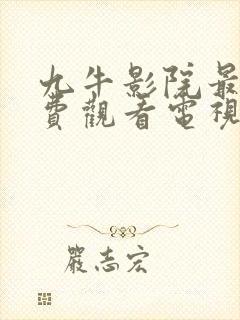 九牛影院最
費觀看電視
嚴志宏